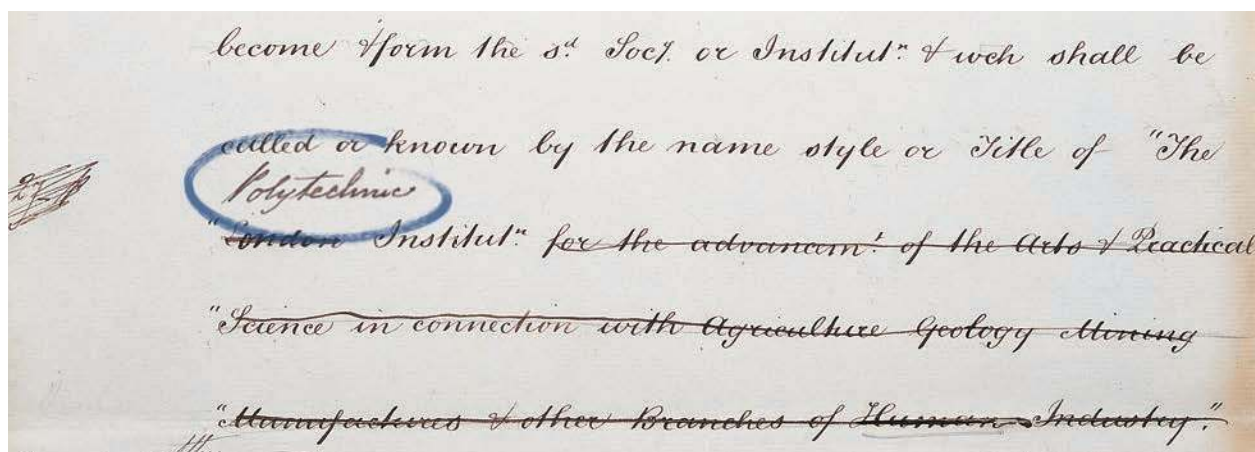 become & form the sd. Socy. or Institutn. & wch shall be
called or known by the name style or Title of "The
Polytechnic
"London Institutn. for the advancamt. of the Arts & Practical
"Science in connection with Agriculture Geology Mining
"Manufactures & other Branches of Human Industry."